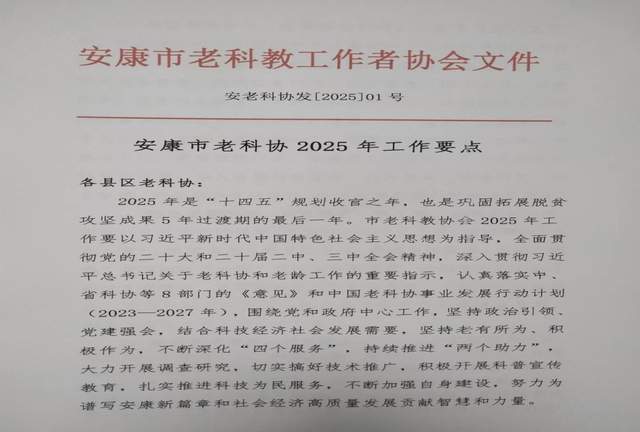 安康市老科教工作者协会文件
安老科协发[2025]01号
安康市老科协2025年工作要点
各县区老科协：
2025年是“十四五”规划收官之年，也是巩固拓展脱贫
攻坚成果5年过渡期的最后一年。市老科教协会2025年工
作要以习近平新时代中国特色社会主义思想为指导，全面贯
彻党的二十大和二十届二中、三中全会精神，深入贯彻习近
平总书记关于老科协和老龄工作的重要指示，认真落实中、
省科协等8部门的《意见》和中国老科协事业发展行动计划
（2023—2027年），围绕党和政府中心工作，坚持政治引领、
党建强会，结合科技经济社会发展需要，坚持老有所为、积
极作为，不断深化“四个服务”，持续推进“两个助力”，
大力开展调查研究，切实搞好技术推广，积极开展科普宣传
教育，扎实推进科技为民服务，不断加强自身建设，努力为
谱写安康新篇章和社会经济高质量发展贡献智慧和力量。